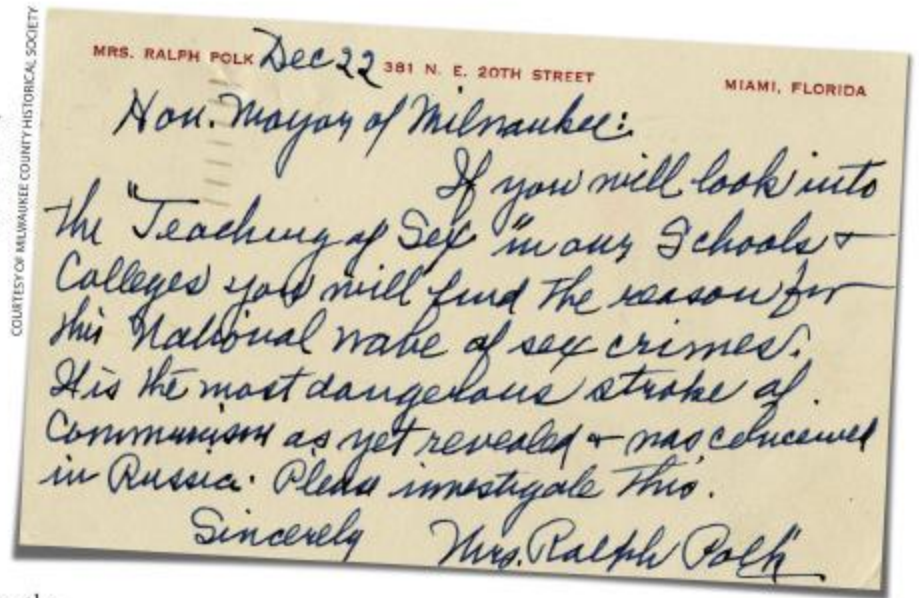 COURTESY OF MILWAUKEE COUNTY HISTORICAL SOCIETY
MRS. RALPH POLK Dec 22 381 N. E. 20TH STREET MIAMI, FLORIDA
Hon. Mayor of Milwaukee:
If you will look into
the "Teaching of Sex" in our Schools +
Colleges you will find the reason for
this National wave of sex crimes.
It is the most dangerous stroke of
Communism as yet revealed + was conceived
in Russia. Please investigate this.
Sincerely Mrs. Ralph Polk